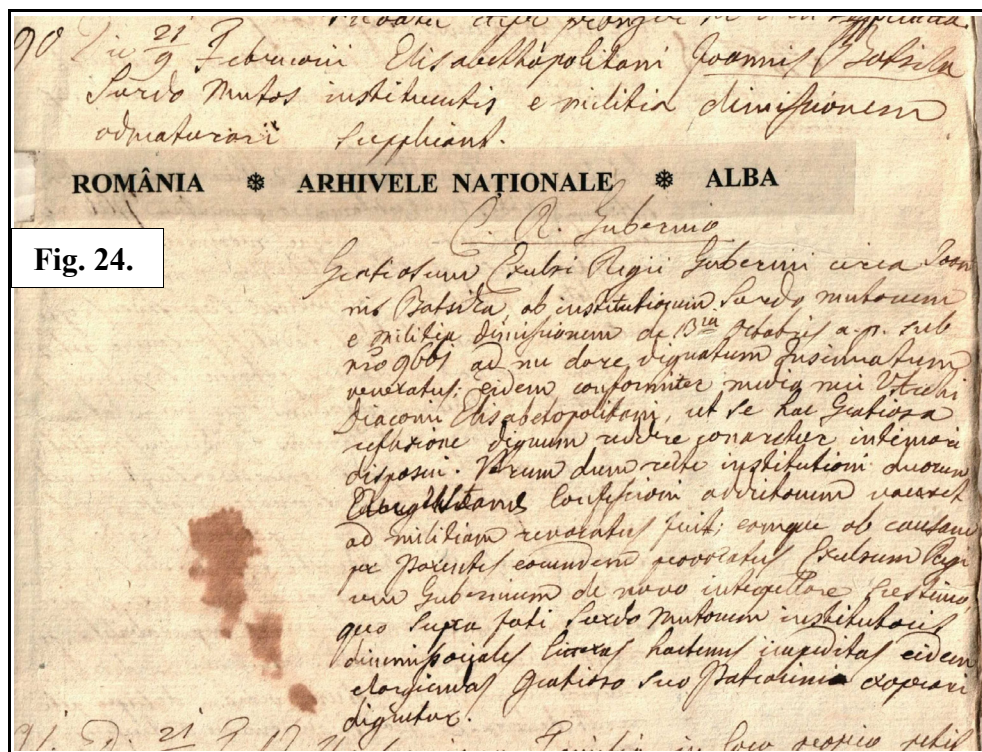 90 Die 21/9 Februarii Elisabethopolitani Joannis Batsila
Surdo Mutos instituentis e militia dimissionem
admaturari supplicant.
ROMÂNIA ❄ ARHIVELE NAȚIONALE ❄ ALBA
C. R. Gubernio
Fig. 24.
Gratiosum Excelsi Regii Gubernii circa Joan
nis Batsila, ob institutionem Surdo mutorum
e militia dimissionem de 13ia Octobris a. p. sub
nro 9661 ad me dare dignatum Insinuatum
veneratus: eidem conformiter medio mei
Diaconi Elisabetopolitani, ut se hac Gratiosa
dignum reddere conaretur intimari
disposui. Verum dum recte institutioni duorum
Confessioni addictorum vacaret
ad militiam revocatus fuit; eamque ob causam
per Parentes eorundem provocatus Excelsum Regi
um Gubernium de novo interpellare
quo supra fati Surdo Mutorum institutoris
dimissionales litteras hactenus impeditas eidem
elargiendas gratioso suo Patrocinio
dignetur.
91. Die 21
in loco